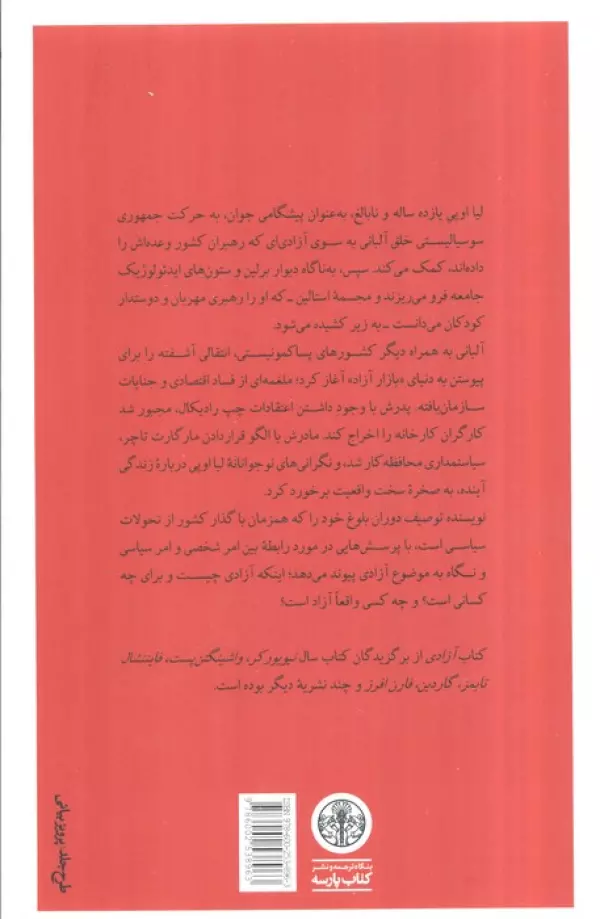 لیا اوپی یازده ساله و نابالغ، به‌عنوان پیشگامی جوان، به حرکت جمهوری
سوسیالیستی خلق آلبانی به سوی آزادی‌ای که رهبران کشور وعده‌اش را
داده‌اند، کمک می‌کند. سپس، به‌ناگاه دیوار برلین و ستون‌های ایدئولوژیک
جامعه فرو می‌ریزند و مجسمهٔ استالین ـ که او را رهبری مهربان و دوستدار
کودکان می‌دانست ـ به زیر کشیده می‌شود.
آلبانی به همراه دیگر کشورهای پساکمونیستی، انتقالی آشفته را برای
پیوستن به دنیای «بازار آزاد» آغاز کرد؛ ملغمه‌ای از فساد اقتصادی و جنایات
سازمان‌یافته. پدرش با وجود داشتن اعتقادات چپ رادیکال، مجبور شد
کارگران کارخانه را اخراج کند. مادرش با الگو قراردادن مارگارت تاچر،
سیاستمداری محافظه‌کار شد، و نگرانی‌های نوجوانانهٔ لیا اوپی دربارهٔ زندگی
آینده، به صخرهٔ سخت واقعیت برخورد کرد.
نویسنده توصیف دوران بلوغ خود را که همزمان با گذار کشور از تحولات
سیاسی است، با پرسش‌هایی در مورد رابطهٔ بین امر شخصی و امر سیاسی
و نگاه به موضوع آزادی پیوند می‌دهد؛ اینکه آزادی چیست و برای چه
کسانی است؟ و چه کسی واقعاً آزاد است؟
کتاب آزادی از برگزیدگان کتاب سال نیویورکر، واشینگتن‌پست، فایننشال
تایمز، گاردین، فارن افرز و چند نشریهٔ دیگر بوده است.
طرح جلد: پرویز بیانی
ISBN 978-600-253-896-3
9786002538963
بنگاه ترجمه و نشر
کتاب پارسه